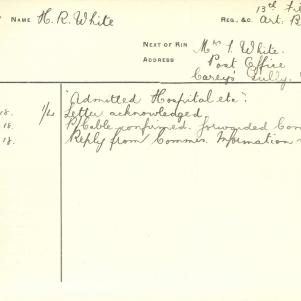 NAME H. R. White
REG. &c. 13th
Art. B
NEXT OF KIN Mrs. I. White.
ADDRESS Post Office
Carey's Gully.
"Admitted Hospital etc".
18. 1/21 Letter acknowledged.
18. P/Cable confirmed. forwarded Com
18. Reply from Commdn. Information